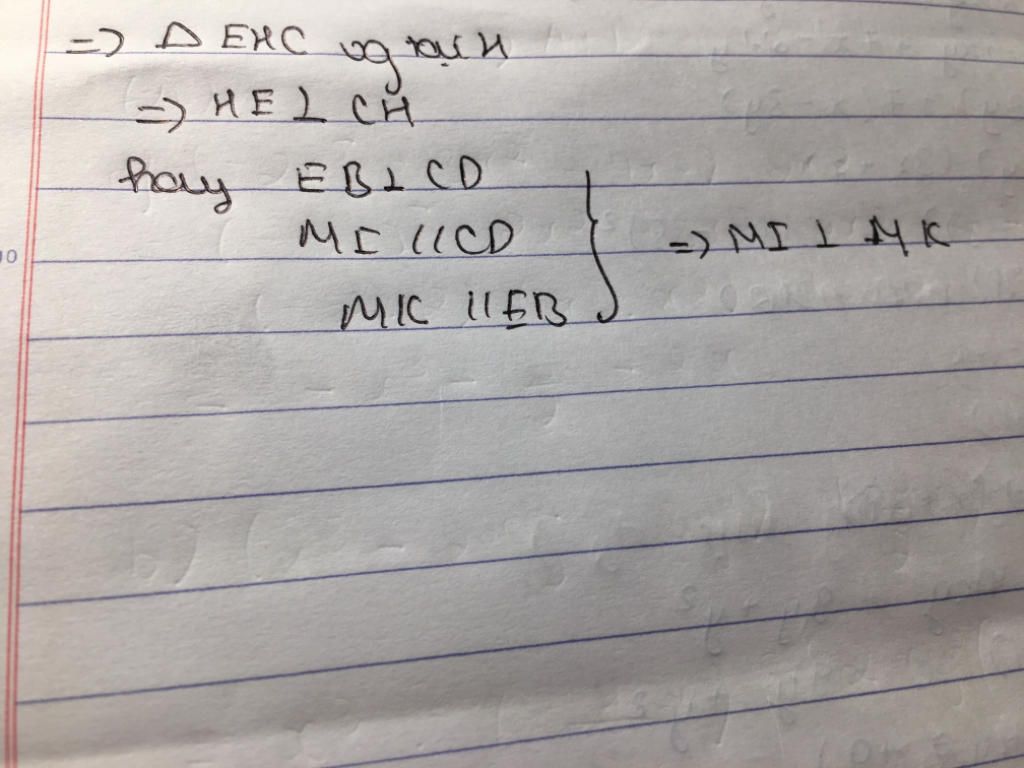 => Δ EHC vg tại H
=> HE ⊥ CH
hay EB ⊥ CD
MI // CD => MI ⊥ MK
MK // EB